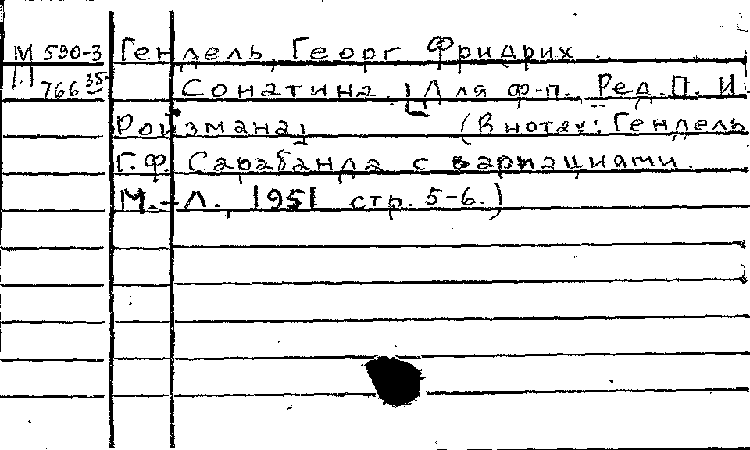 М 590-3 Гендель, Георг Фридрих.
766 35 Сонатина. [Для ф-п. Ред. П. И.
Ройзмана] (В нотах: Гендель
Г.Ф. Сарабанда с вариациями.
М.-Л., 1951 стр. 5-6.)